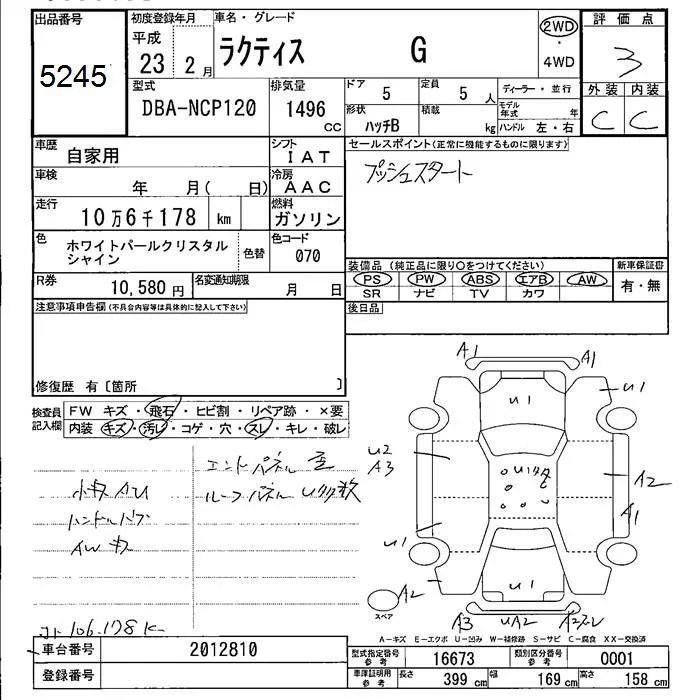 出品番号
5245
初度登録年月
平成
23 2月
車名・グレード
ラクティス G
2WD
・
4WD
評価点
3
外装 内装
C C
型式
DBA-NCP120
排気量
1496
CC
ドア
5
定員
5 人
形状
ハッチB
積載
kg
ディーラー・並行
モデル年式 年
ハンドル 左・右
車歴
自家用
シフト
IAT
車検
年 月( 日)
冷房
AAC
走行
10万6千178 km
燃料
ガソリン
色
ホワイトパールクリスタル
シャイン
色替
色コード
070
R券
10,580 円
名変通知期限
月 日
セールスポイント(正常に機能するものに限ります)
プッシュスタート
装備品 (純正品に限り○をつけてください)
新車保証書
PS PW ABS エアB AW
有・無
SR ナビ TV カワ
後日品
注意事項申告欄(不具合内容等は具体的に記入して下さい)
修復歴 有〔箇所 〕
検査員
記入欄
FW キズ・飛石・ヒビ割・リペア跡・×要
内装 キズ・汚レ・コゲ・穴・スレ・キレ・破レ
エンドパネル歪
小キズAU
ハンドル
AWキズ
106.178K
A1
A1
U1
U1
U2
A3
A2
A1
U1
U1
A2
スペア
A3
UA2
A2スレ
A-キズ E-エクボ U-凹み W-補修跡 S-サビ C-腐食 XX-交換済
車台番号
2012810
登録番号
型式指定番号
参考
16673
類別区分番号
参考
0001
車庫証明用
参考
長さ
399 cm
幅
169 cm
高さ
158 cm